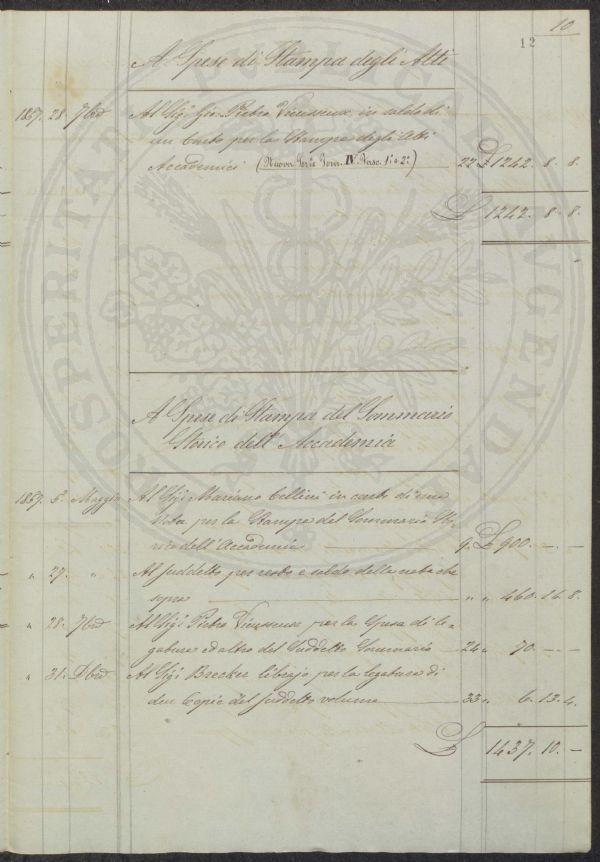 10
12
A Spese di Stampa degli Atti
1857. 28. 7bre Al Sigr Gio. Pietro Vieusseux in saldo di
un Conto per la Stampa degli Atti
Accademici (Nuova Serie Tom. IV. Fasc. 1° e 2°) 22 £ 1242. 8. 8.
£ 1242. 8. 8.
A Spese di Stampa del Sommario
Storico dell'Accademia
1857. 5. Maggio Al Sigr Mariano Cellini in conto di una
Nota per la Stampa del Sommario Sto-
rico dell'Accademia 9. £ 900. — —
" 27. " Al suddetto per resto e saldo della nota che
sopra " " 460. 16. 8.
" 28. 7bre Al Sigr Pietro Vieusseux per la spesa di le-
gatura ed altro del suddetto Sommario 24 " 70. — —
" 31. Dbre Al Sigr Brecker librajo per la legatura di
due Copie del suddetto volume 33 " 6. 13. 4.
£ 1437. 10. —
PROSPERITATI PUBLICAE AUGENDAE